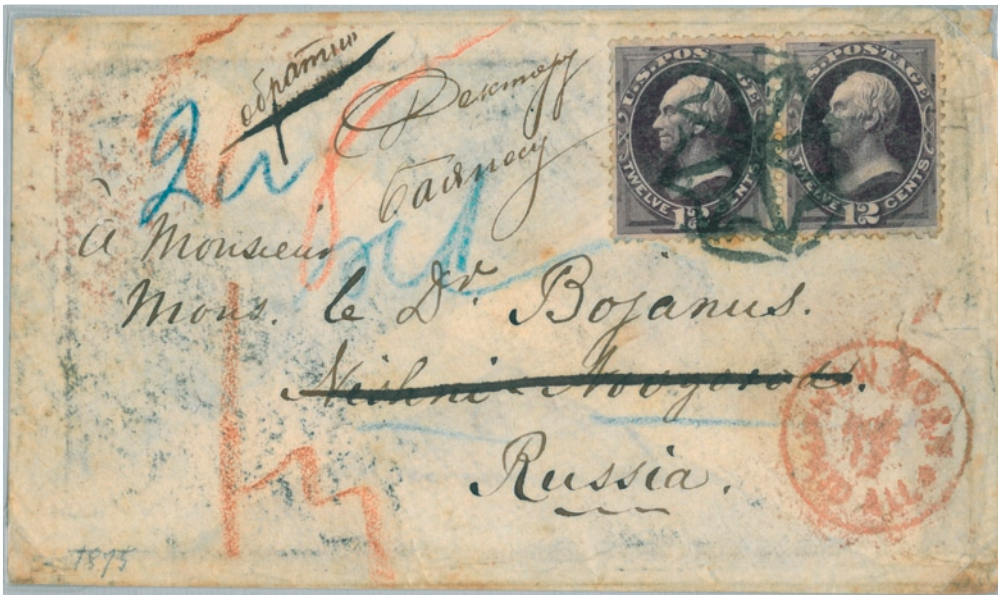 обратно
Доктору
Баянусу
U.S. POSTAGE
TWELVE 12 CENTS
U.S. POSTAGE
TWELVE 12 CENTS
à Monsieur
Mons. le Dr. Bojanus.
Nishni-Novgorod.
Russia.
NEW YORK
PAID ALL
1875